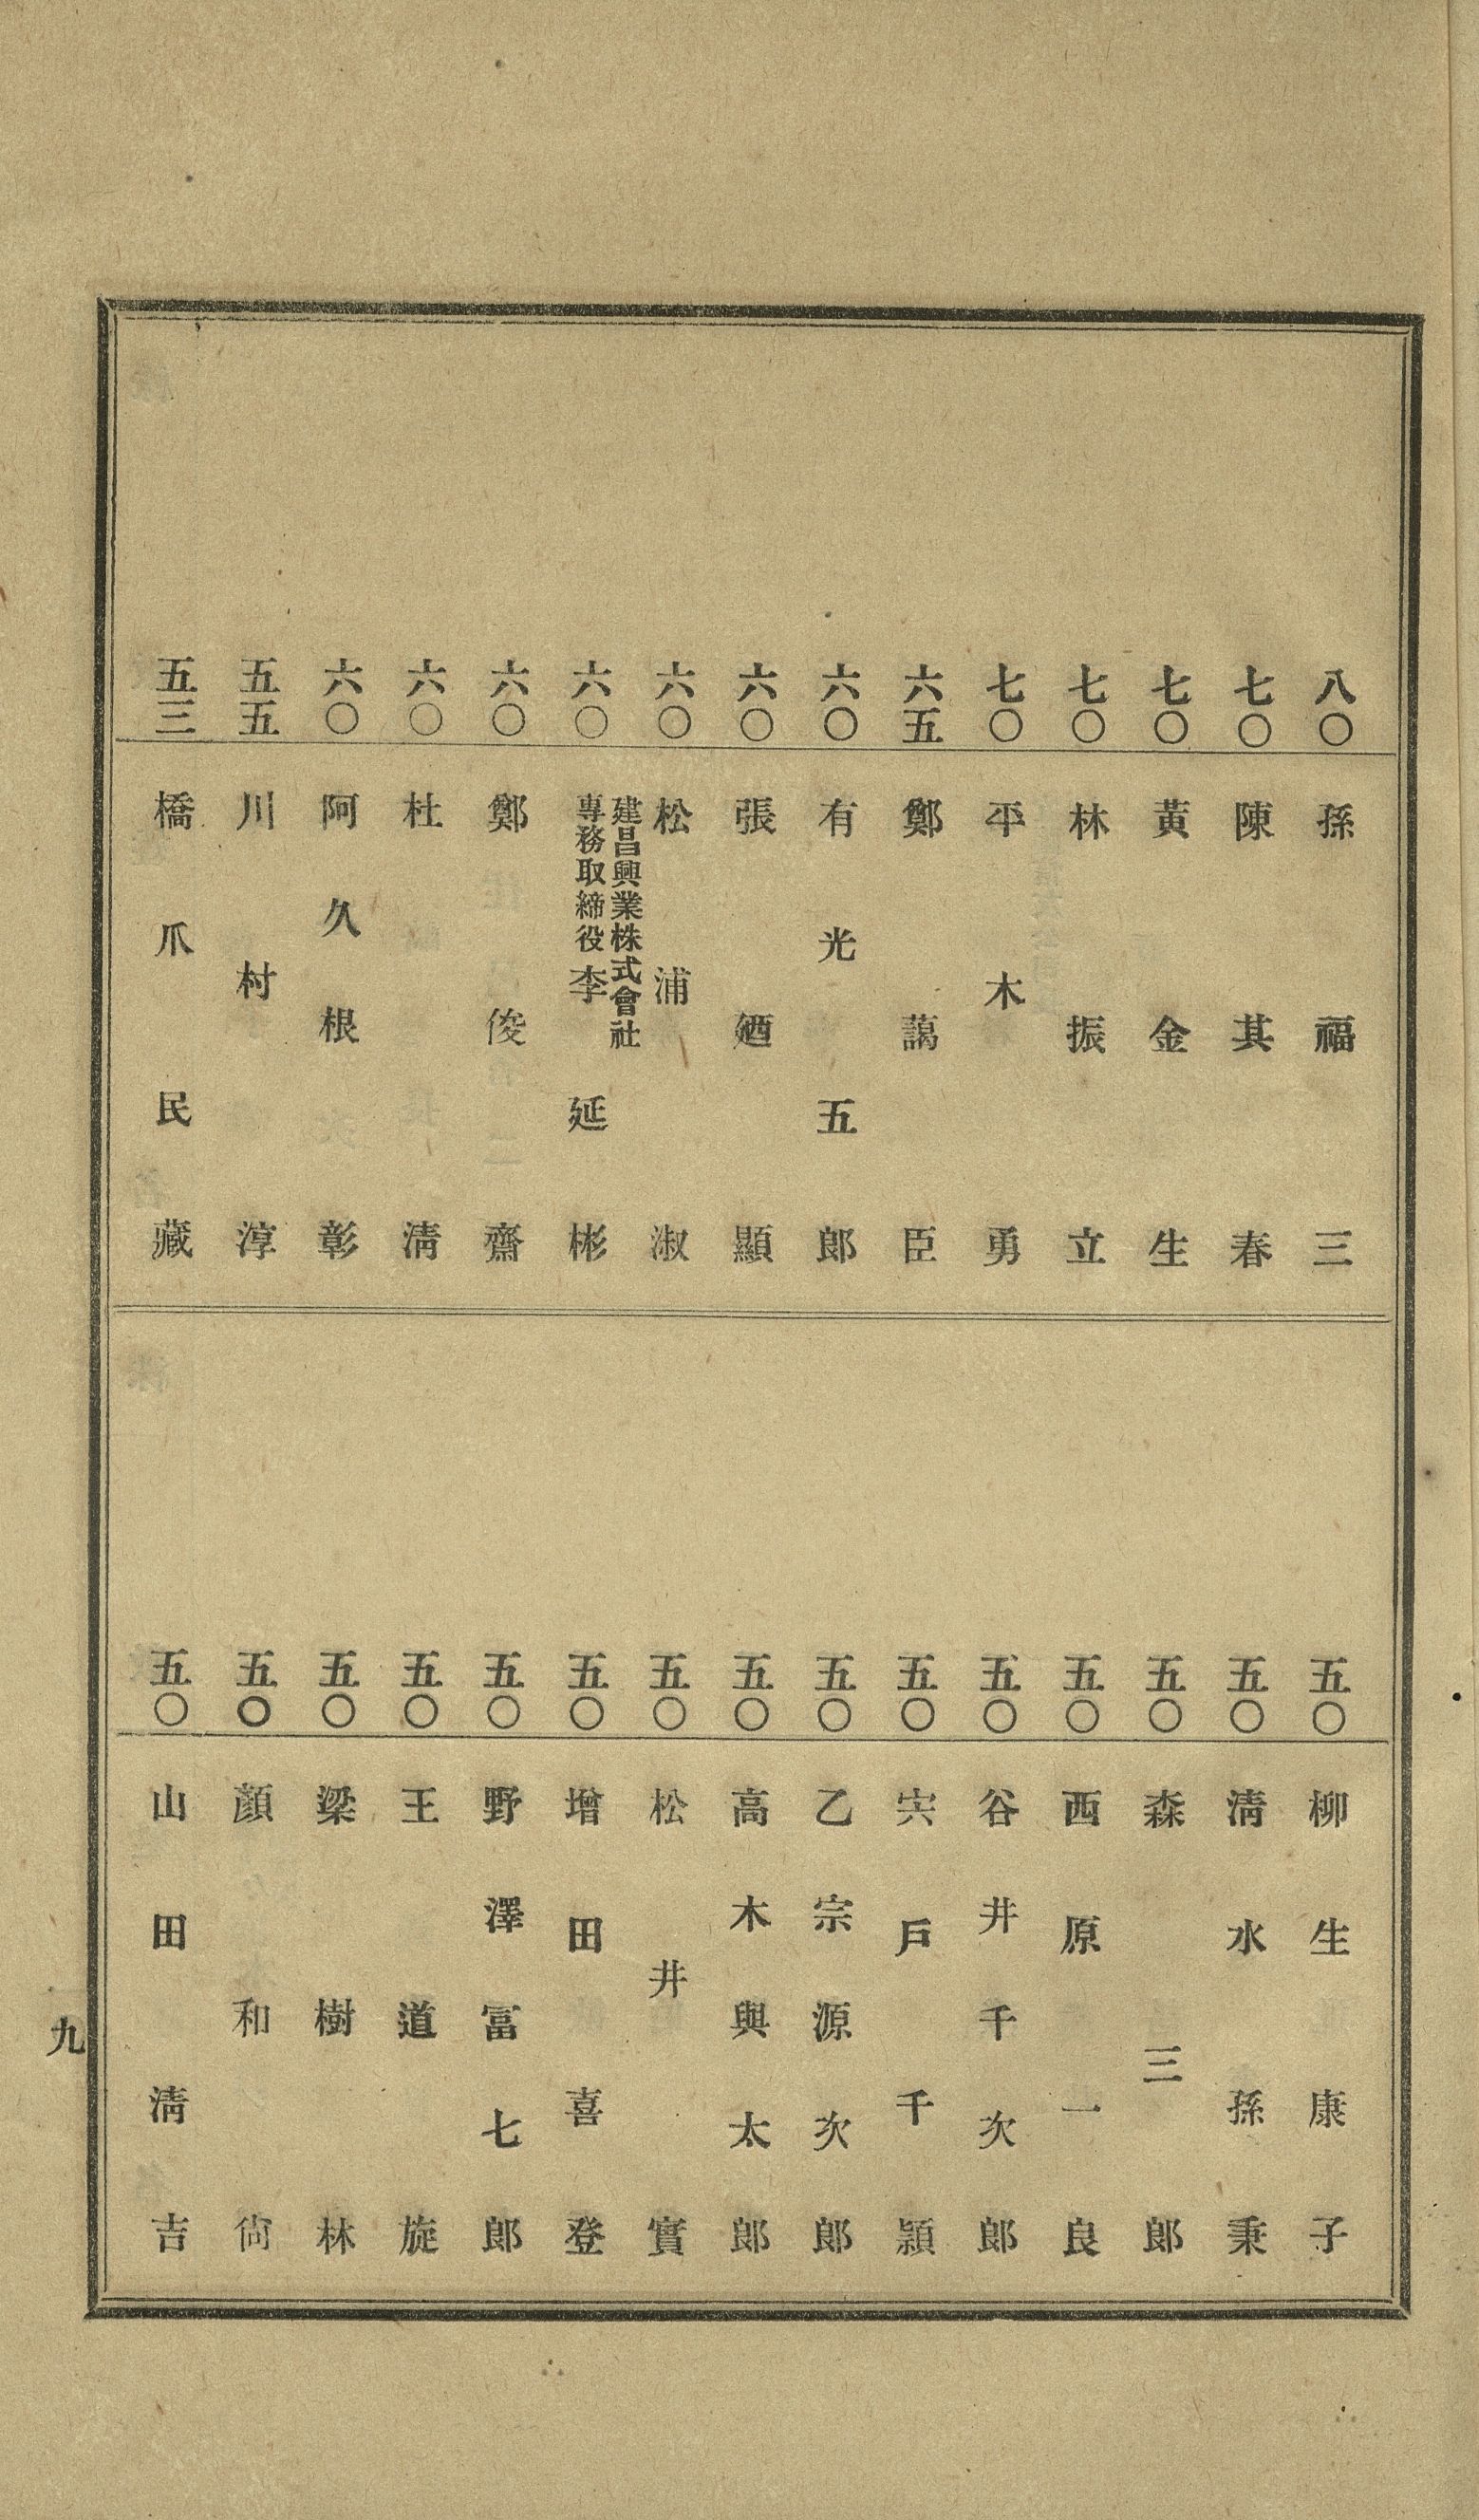 八〇 孫福三
七〇 陳其春
七〇 黃金生
七〇 林振立
七〇 平木勇
六五 鄭藹臣
六〇 有光五郎
六〇 張廼顯
六〇 松浦淑
六〇 建昌興業株式會社專務取締役 李延彬
六〇 鄭俊齋
六〇 杜清
六〇 阿久根彰
五五 川村淳
五三 橋爪民藏
五〇 柳生康子
五〇 清水孫秉
五〇 森三郎
五〇 西原一良
五〇 谷井千次郎
五〇 宍戶千穎
五〇 乙宗源次郎
五〇 高木與太郎
五〇 松井實
五〇 增田喜登
五〇 野澤冨七郎
五〇 王道旋
五〇 梁樹林
五〇 顏和尙
五〇 山田清吉
九